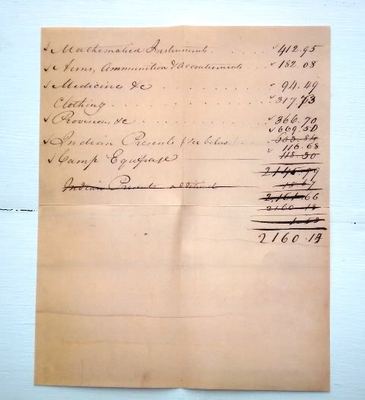 Mathematical Instruments 412.95
Arms, Ammunition & Accoutrements 182.08
Medicine &c 94.49
Clothing 317.73
Provision &c 366.70
669.50
Indian Presents
116.68
Camp Equipage 118.30
Indian Presents additional
2160.14